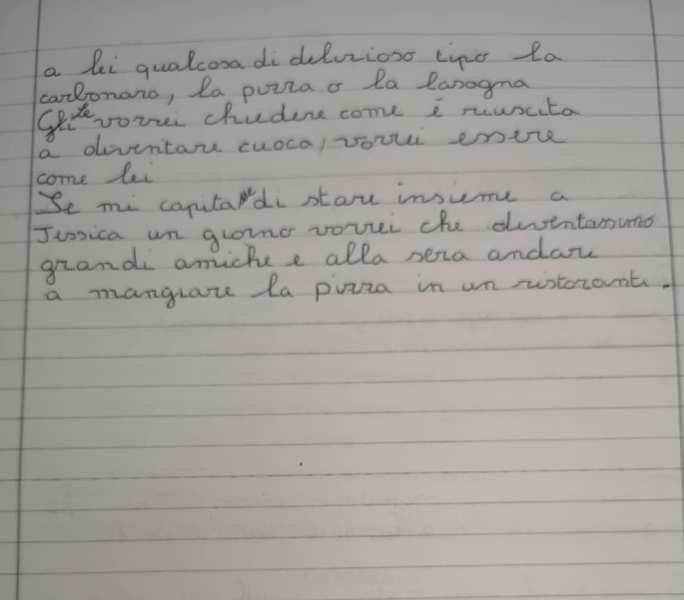 a lei qualcosa di delizioso tipo la
carbonara, la pizza o la lasagna
Gliele vorrei chiedere come è riuscita
a diventare cuoca, vorrei essere
come lei
Se mi capita di stare insieme a
Jessica un giorno vorrei che diventassimo
grandi amiche e alla sera andare
a mangiare la pizza in un ristorante.